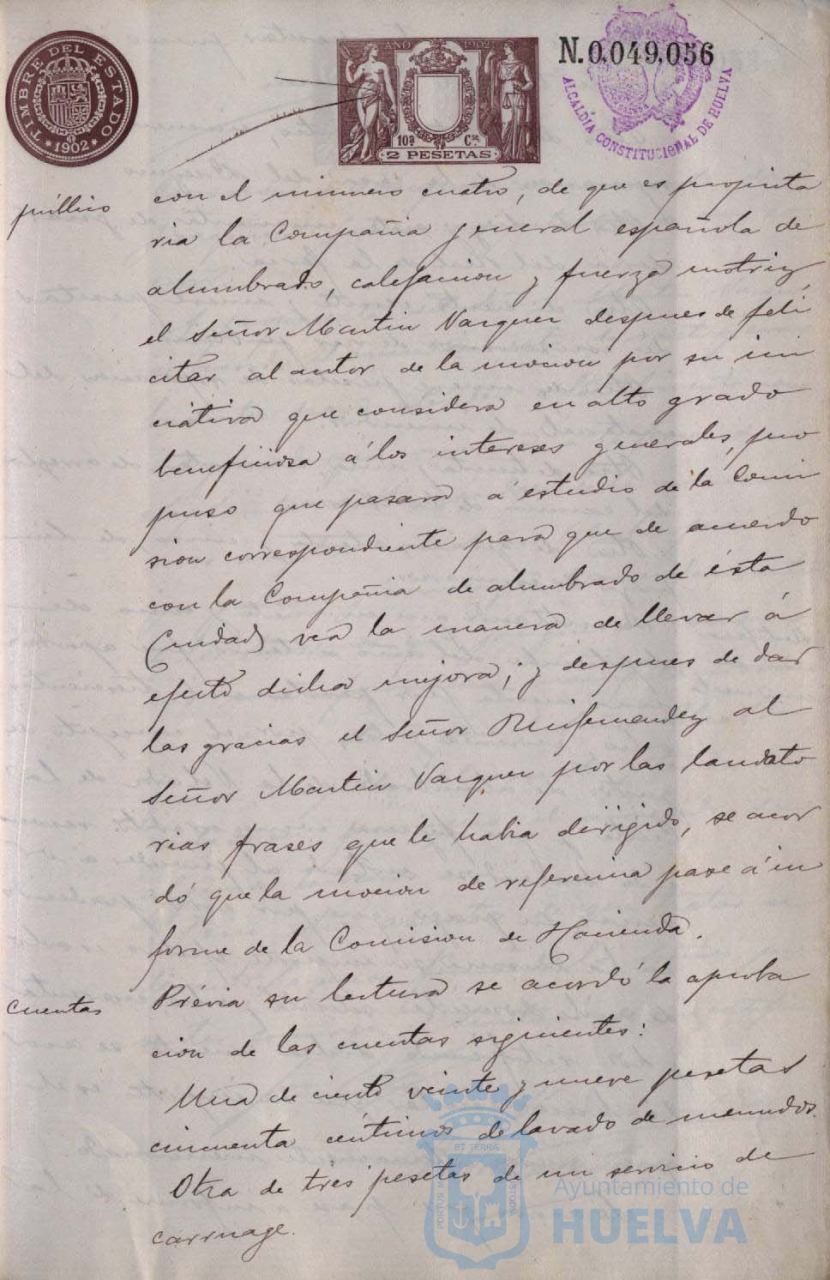 TIMBRE DEL ESTADO
1902
AÑO 1902
10ª Cse.
2 PESETAS
N.0,049,056
ALCALDÍA CONSTITUCIONAL DE HUELVA
público
con el número cuatro, de que es propieta
ria la Compañia general española de
alumbrado, calefacion y fuerza motriz,
el Señor Martin Vazquez despues de feli
citar al autor de la mocion por su ini
ciativa que considera en alto grado
beneficiosa á los intereses generales, pro
puso que pasara á estudio de la Comi
sion correspondiente para que de acuerdo
con la Compañia de alumbrado de ésta
Ciudad vea la manera de llevar á
efecto dicha mejora; y despues de dar
las gracias el Señor Ruifernandez al
Señor Martin Vazquez por las laudato
rias frases que le habia dirigido, se acor
dó que la mocion de referencia pase á in
forme de la Comision de Hacienda.
cuentas
Prévia su lectura se acordó la aproba
cion de las cuentas siguientes:
Una de ciento veinte y nueve pesetas
cincuenta céntimos de lavado de menudos.
Otra de tres pesetas de un servicio de
carruage.
Ayuntamiento de
HUELVA